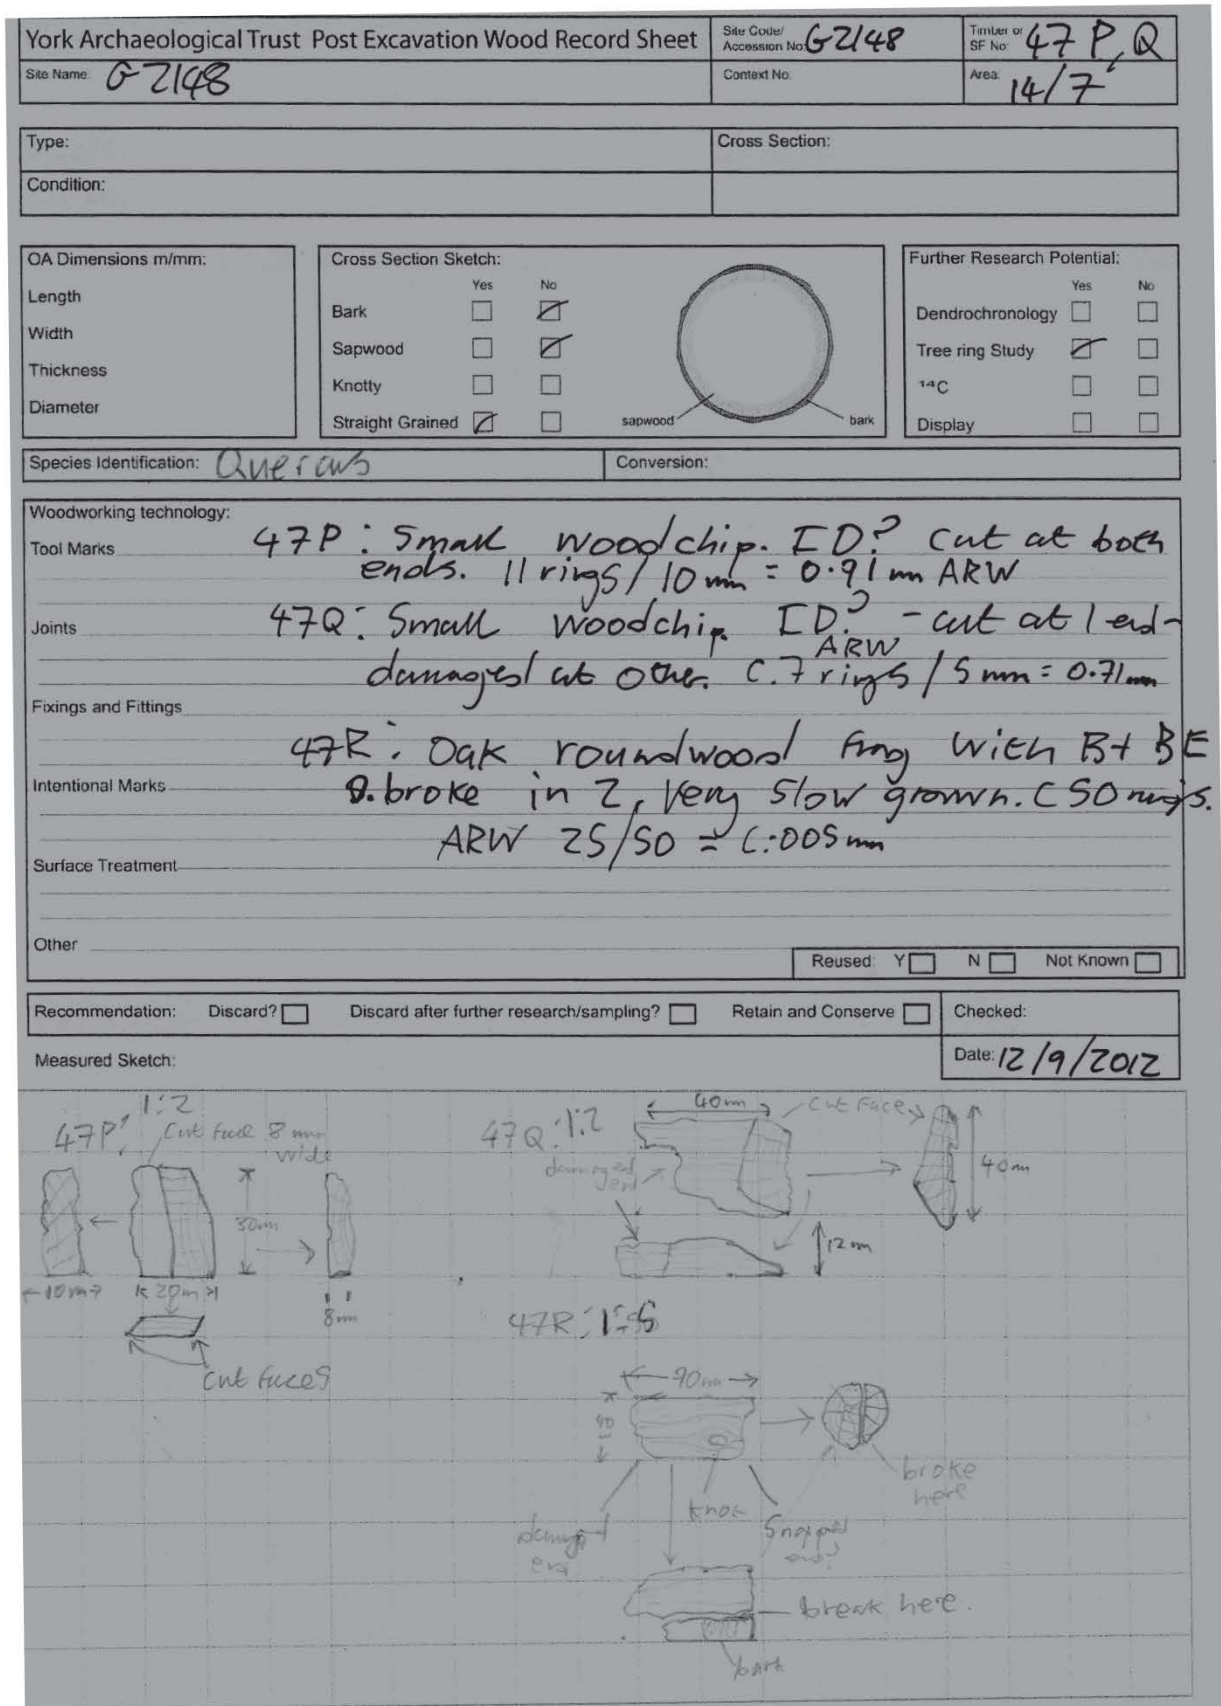 York Archaeological Trust Post Excavation Wood Record Sheet
Site Code/ Accession No: GZ148
Timber or SF No: 47 P, Q
Site Name: GZ148
Context No:
Area: 14/7
Type:
Cross Section:
Condition:
OA Dimensions m/mm:
Length
Width
Thickness
Diameter
Cross Section Sketch:
Yes No
Bark
Sapwood
Knotty
Straight Grained
sapwood
bark
Further Research Potential:
Yes No
Dendrochronology
Tree ring Study
14C
Display
Species Identification: Quercus
Conversion:
Woodworking technology:
Tool Marks
47P: Small woodchip. ID? Cut at both
ends. 11 rings/10 mm = 0.91 mm ARW
Joints
47Q: Small woodchip. ID? - cut at 1 end -
ARW
damaged at other. C.7 rings/5 mm = 0.71mm
Fixings and Fittings
47R: Oak roundwood frag with B+ BE
Intentional Marks
broke in 2, very slow grown. C50 rings.
ARW 25/50 = C.005mm
Surface Treatment
Other
Reused: Y N Not Known
Recommendation: Discard? Discard after further research/sampling? Retain and Conserve
Checked:
Measured Sketch:
Date: 12/9/2012
47P: 1:2
Cut face 8 mm
wide
30mm
10mm
20mm
8mm
cut faces
47Q: 1:2
40mm
cut face
damaged
end
40mm
12mm
47R: 1:5
90mm
broke
here
knot
damaged
end
Snapped
end?
break here.
bark